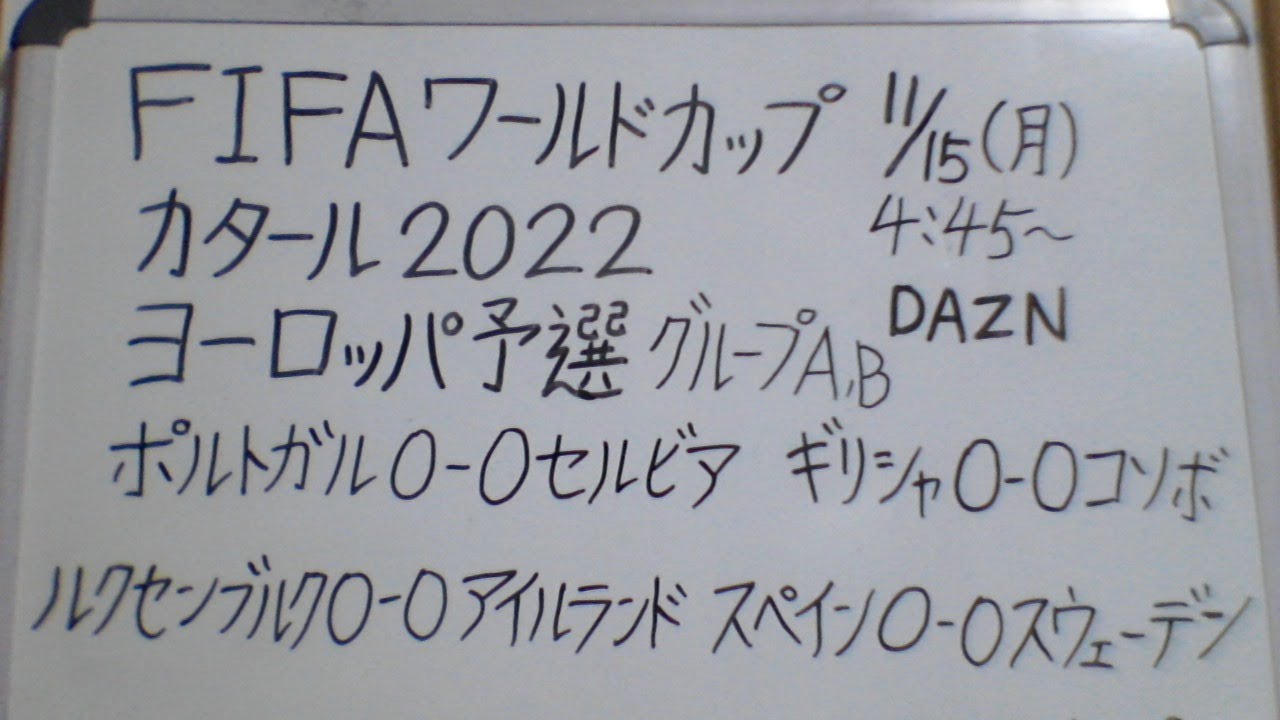 FIFAワールドカップ 11/15(月)
カタール2022 4:45〜
ヨーロッパ予選 グループA,B DAZN
ポルトガル0-0セルビア ギリシャ0-0コソボ
ルクセンブルク0-0アイルランド スペイン0-0スウェーデン